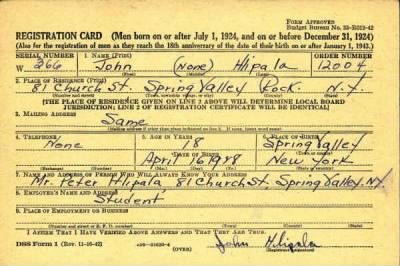 FORM APPROVED
Budget Bureau No. 33-R1012-42
REGISTRATION CARD (Men born on or after July 1, 1924, and on or before December 31, 1924)
(Also for the registration of men as they reach the 18th anniversary of the date of their birth on or after January 1, 1943.)
SERIAL NUMBER 1. NAME (Print) ORDER NUMBER
W 266 John (None) Hlipala 12009
(First) (Middle) (Last)
2. PLACE OF RESIDENCE (Print)
81 Church St. Spring Valley Rock. N.Y.
(Number and street) (Town, township, village, or city) (County) (State)
[THE PLACE OF RESIDENCE GIVEN ON LINE 2 ABOVE WILL DETERMINE LOCAL BOARD
JURISDICTION; LINE 2 OF REGISTRATION CERTIFICATE WILL BE IDENTICAL]
3. MAILING ADDRESS
Same
4. TELEPHONE 5. AGE IN YEARS 6. PLACE OF BIRTH
None 18 Spring Valley
DATE OF BIRTH
April 16 New York
7. NAME AND ADDRESS OF PERSON WHO WILL ALWAYS KNOW YOUR ADDRESS
Mr. Peter Hlipala 81 Church St. Spring Valley N.Y.
8. EMPLOYER'S NAME AND ADDRESS
Student
9. PLACE OF EMPLOYMENT OR BUSINESS
I AFFIRM THAT I HAVE VERIFIED ABOVE ANSWERS AND THAT THEY ARE TRUE.
DSS Form 1 (Rev. 11-16-42) (OVER) John